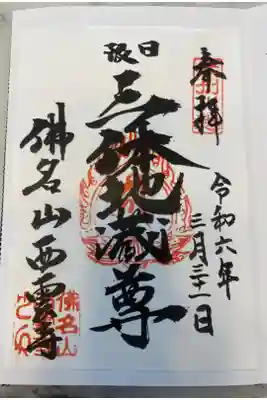 奉拝
令和六年
三月三十一日
日限
三体地蔵尊
佛名山西雲寺
佛名山